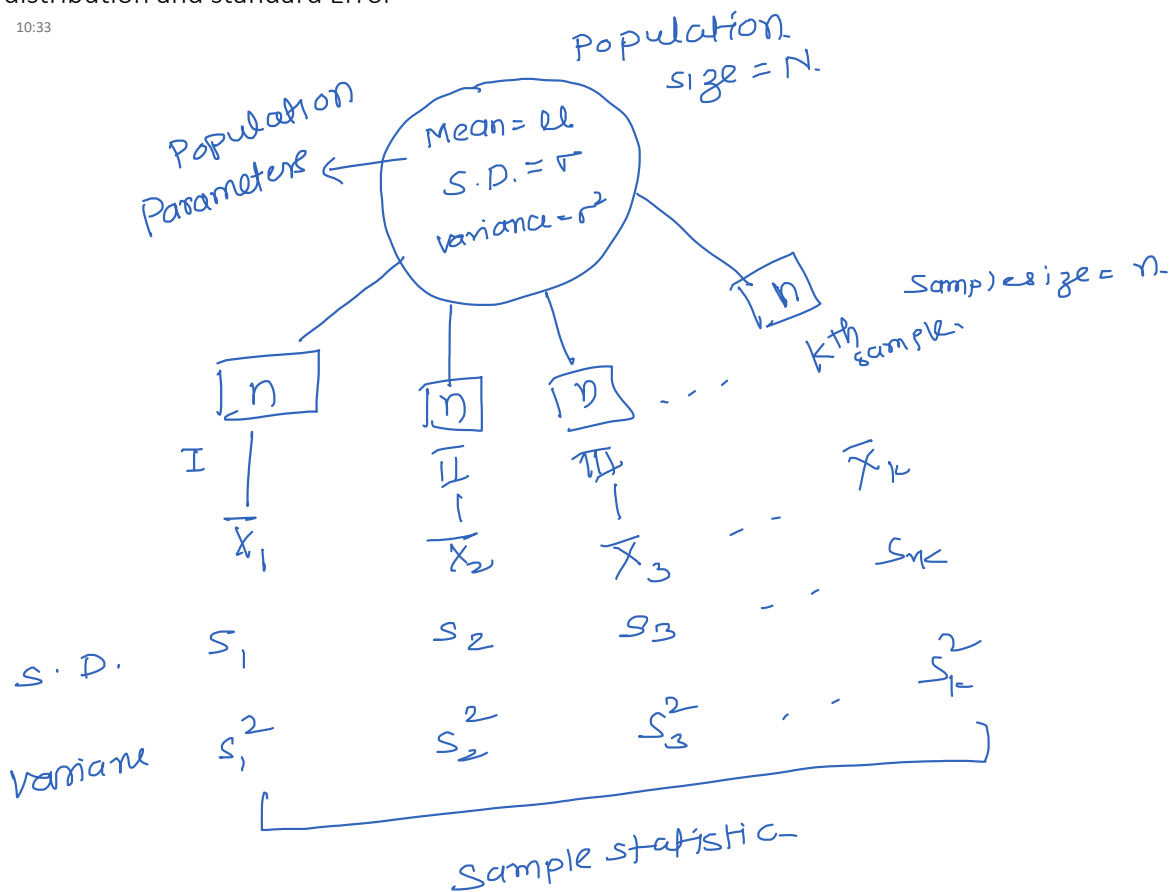 distribution and standard Error
10:33
Population
size = N.
Population
Parameters
Mean = μ
S.D. = σ
variance = σ²
n
n
n
n
Sample size = n.
kth sample.
I
II
III
X̄₁
X̄₂
X̄₃
- -
X̄k
S.D.
S₁
S₂
S₃
- -
Sk
Variane
S₁²
S₂²
S₃²
- -
Sk²
Sample statistic